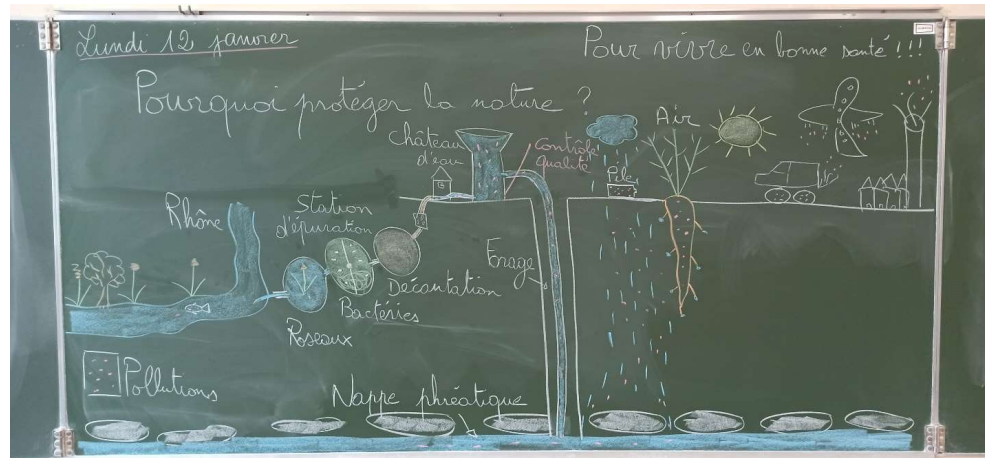 Lundi 12 janvier
Pour vivre en bonne santé !!!
Pourquoi protéger la nature ?
Château
d'eau
contrôle
qualité
Air
Pile
Rhône
Station
d'épuration
Forage
Décantation
Bactéries
Roseaux
Pollutions
Nappe phréatique